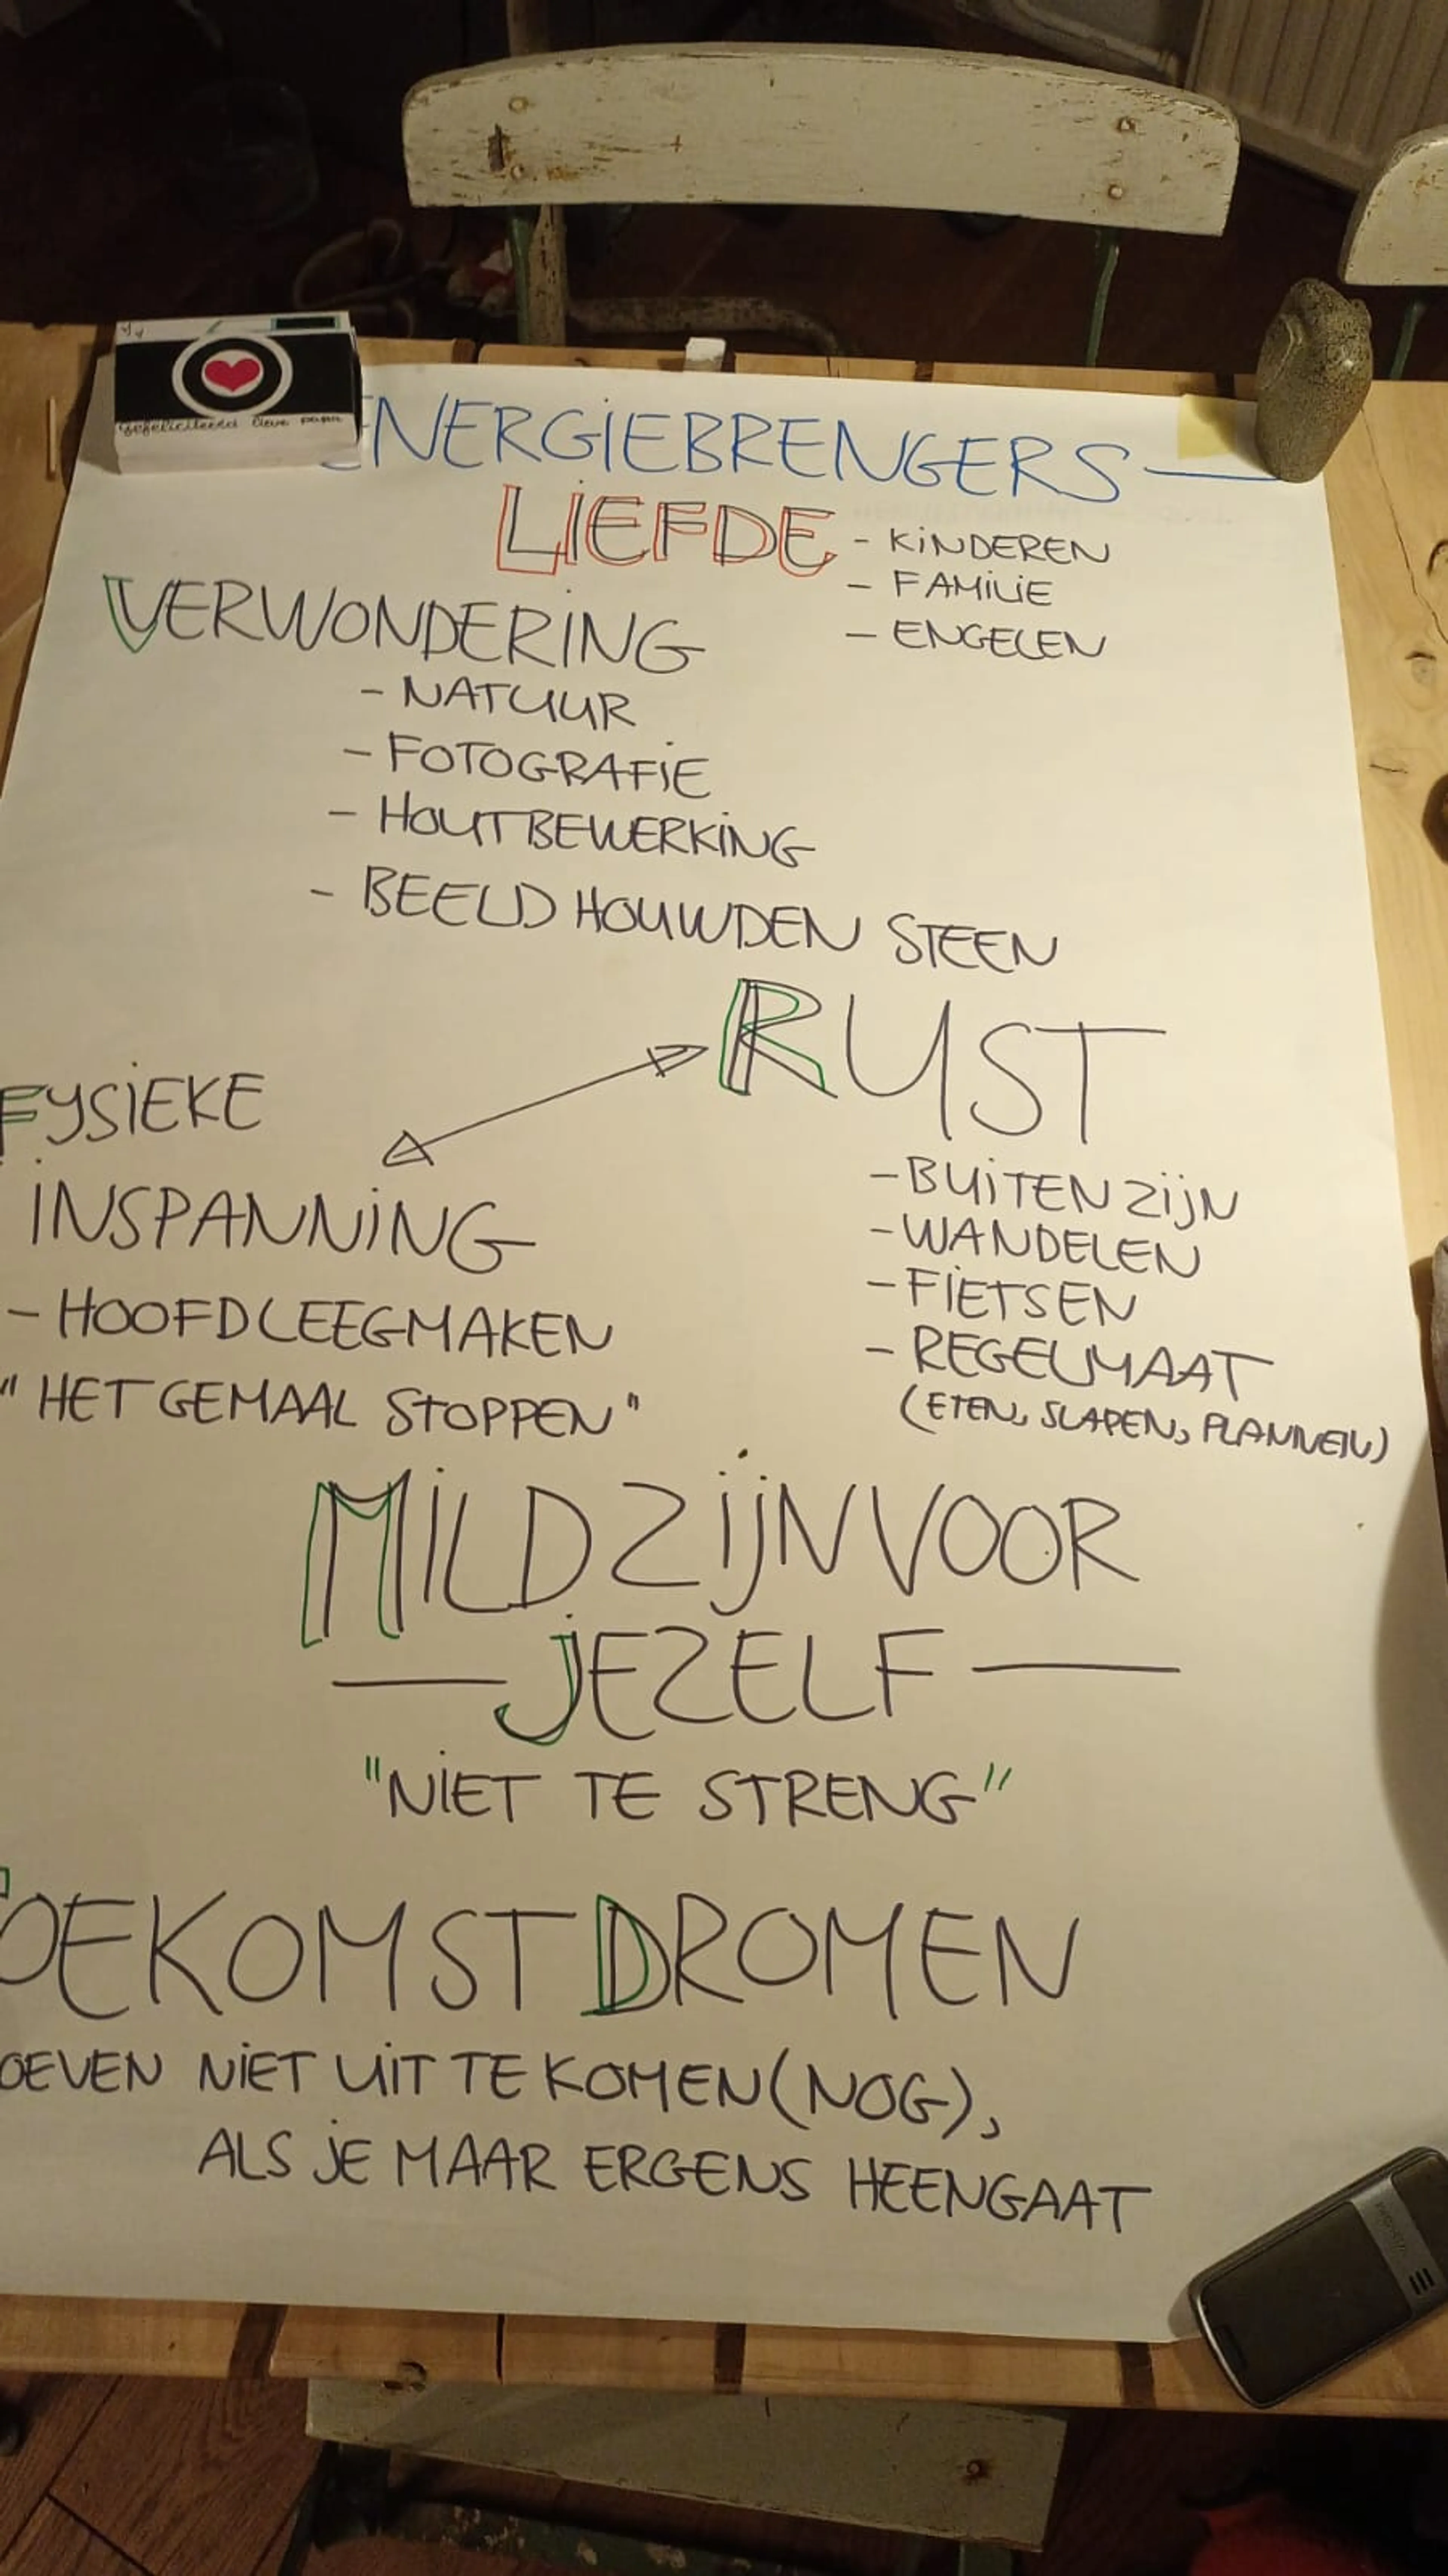 Gefeliciteerd lieve papa
ENERGIEBRENGERS
LIEFDE
- KINDEREN
- FAMILIE
- ENGELEN
VERWONDERING
- NATUUR
- FOTOGRAFIE
- HOUTBEWERKING
- BEELDHOUWDEN STEEN
RUST
- BUITEN ZIJN
- WANDELEN
- FIETSEN
- REGELMAAT
(ETEN, SLAPEN, PLANNEN)
FYSIEKE
INSPANNING
- HOOFD LEEGMAKEN
"HET GEMAAL STOPPEN"
MILD ZIJN VOOR
JEZELF
"NIET TE STRENG"
OEKOMST DROMEN
OEVEN NIET UIT TE KOMEN (NOG),
ALS JE MAAR ERGENS HEENGAAT